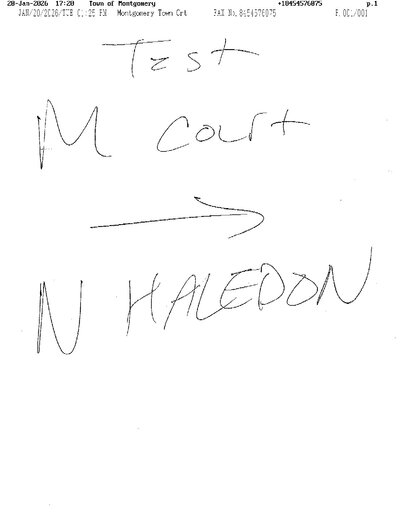 20-Jan-2026 17:28 Town of Montgomery +18454576875 p.1
JAN/20/2026/TUE 01:25 PM Montgomery Town Crt FAX No. 8454576875 P. 001/001
Test
M Court
N HALEDON